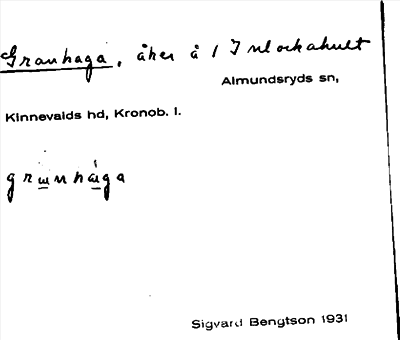 Granhaga, åker å 1 Inlockahult
Almundsryds sn,
Kinnevalds hd, Kronob. l.
Sigvard Bengtson 1931